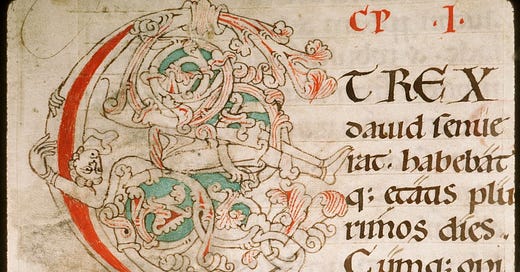 CP ·I·
ET REX
dauid senue
rat. habebat
q; etatis plu
rimos dies.
Cumq; oꝑi